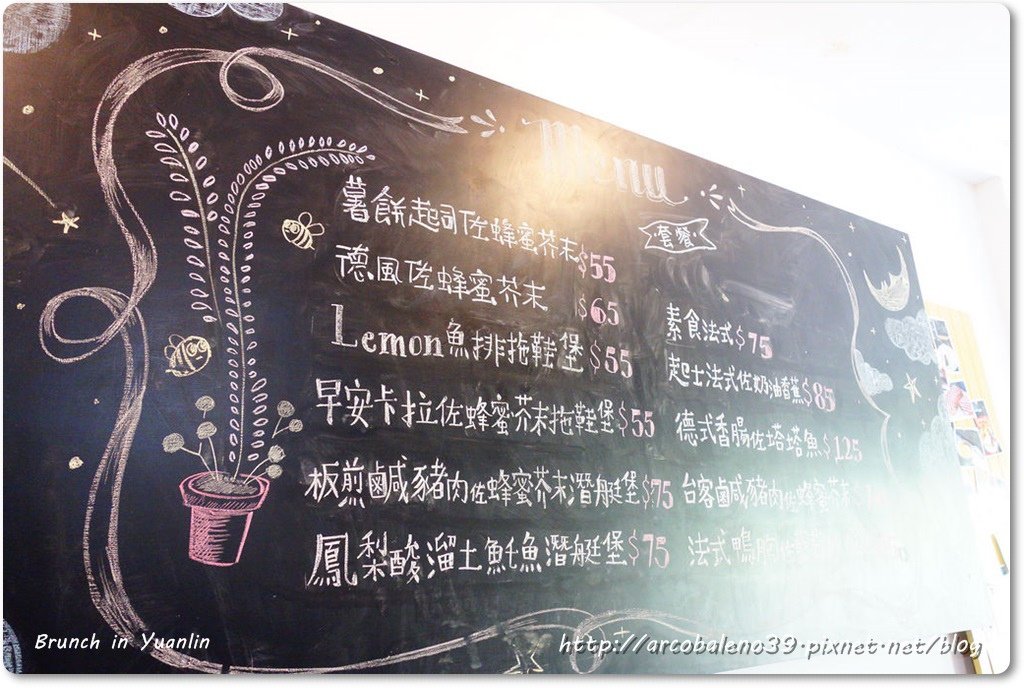 Menu
薯餅起司佐蜂蜜芥末$55
德風佐蜂蜜芥末 $65
Lemon魚排拖鞋堡$55
早安卡拉佐蜂蜜芥末拖鞋堡$55
板煎鹹豬肉佐蜂蜜芥末潛艇堡$75
鳳梨酸溜土魠魚潛艇堡$75
套餐
素食法式$75
起士法式佐奶油香蕉$85
德式香腸佐塔塔魚$125
台客鹹豬肉佐蜂蜜芥末
法式鴨胸
Brunch in Yuanlin
http://arcobaleno39.pixnet.net/blog